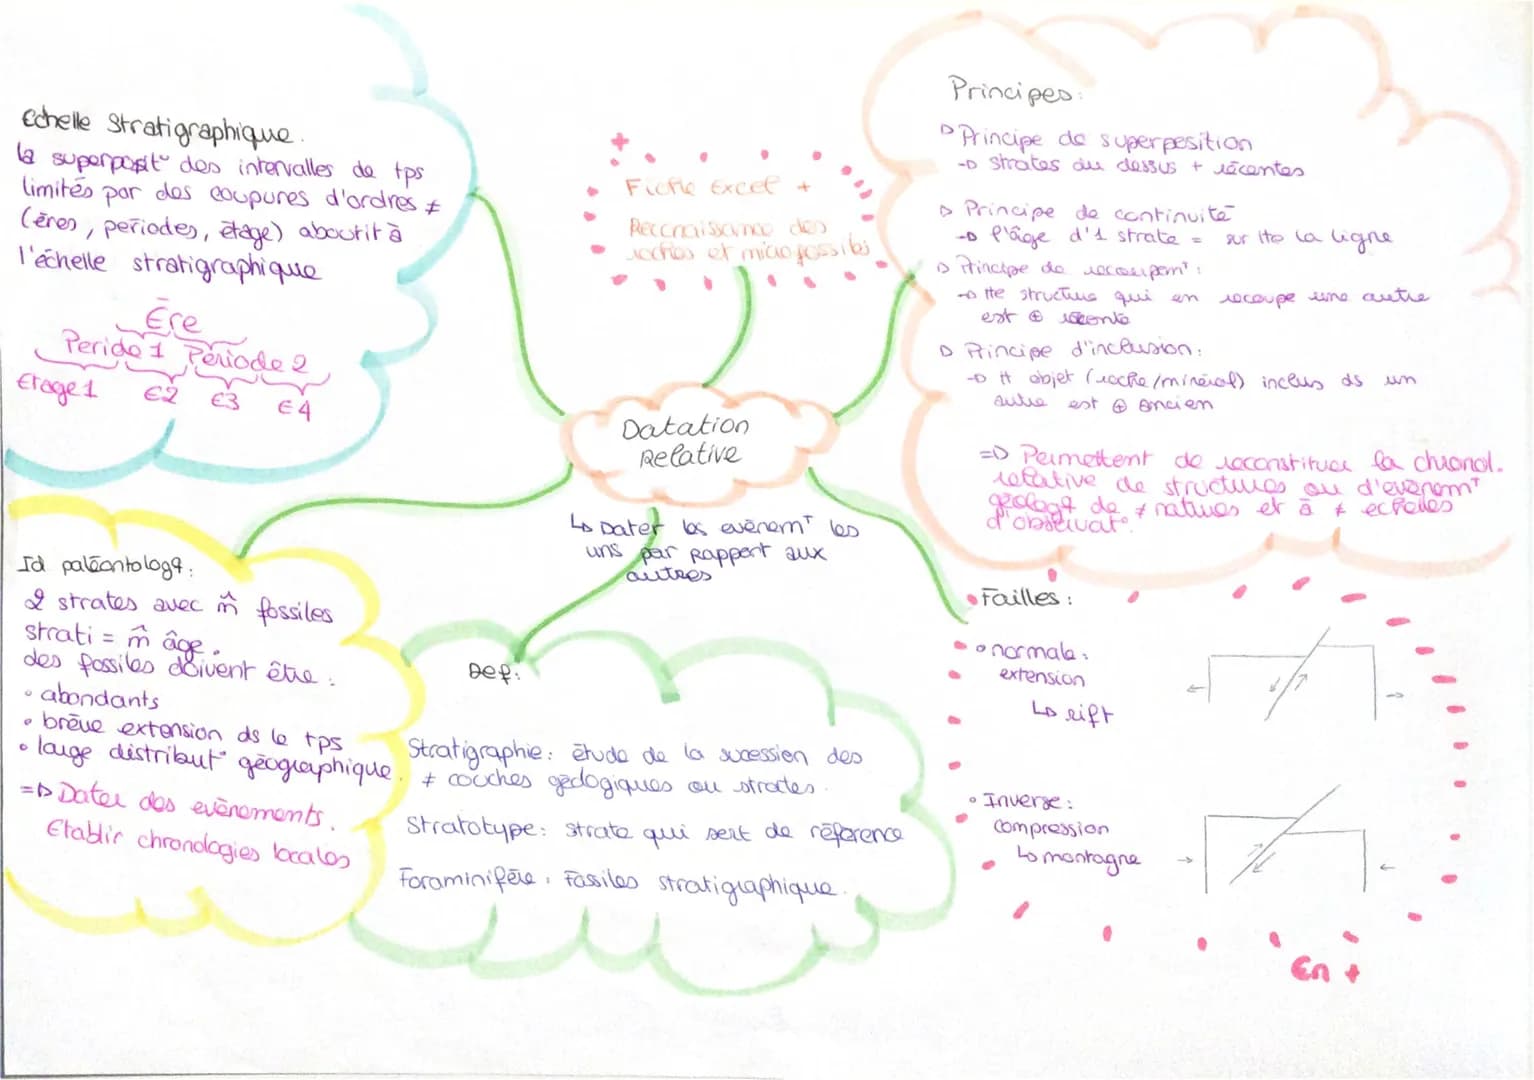 Echelle Stratigraphique.
la superposit° des intervalles de tps
limités par des coupures d'ordres ≠
(ères, périodes, étage) aboutit à
l'échelle stratigraphique
Ère
Periode 1 Période 2
Etage 1 E2 E3 E4
+
Fiche Excel +
Reconnaissance des
roches et micro fossiles
Principes:
▷ Principe de superposition
→ strates au dessus + récentes
▷ Principe de continuité
→ l'âge d'1 strate = sur tte la ligne
▷ Principe de recoupemt :
→ tte structure qui en recoupe une autre
est ⊕ récente
▷ Principe d'inclusion:
→ tt objet (roche/minéral) inclus ds un
autre est ⊕ ancien
=> Permettent de reconstituer la chronol.
relative de structures ou d'évenemt
géologq de ≠ natures et à ≠ echelles
d'observat°.
Datation
Relative
↳ Dater les evènemt les
uns par Rappert aux
autres
Id paléontologq:
2 strates avec m̂ fossiles
strati = m̂ âge.
des fossiles doivent être :
• abondants
• brève extension ds le tps
• large distribut° géographique.
=> Dater des evènements.
Etablir chronologies locales
Def:
Stratigraphie: étude de la sucession des
≠ couches géologiques ou strates.
Stratotype: strate qui sert de référence
Foraminifère: Fossiles stratigraphique.
Failles :
• normale:
extension
↳ rift
• Inverse:
compression
↳ montagne
En +